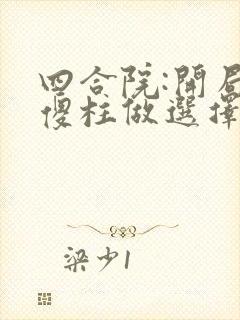 四合院:開局
傻柱做選擇
梁少1